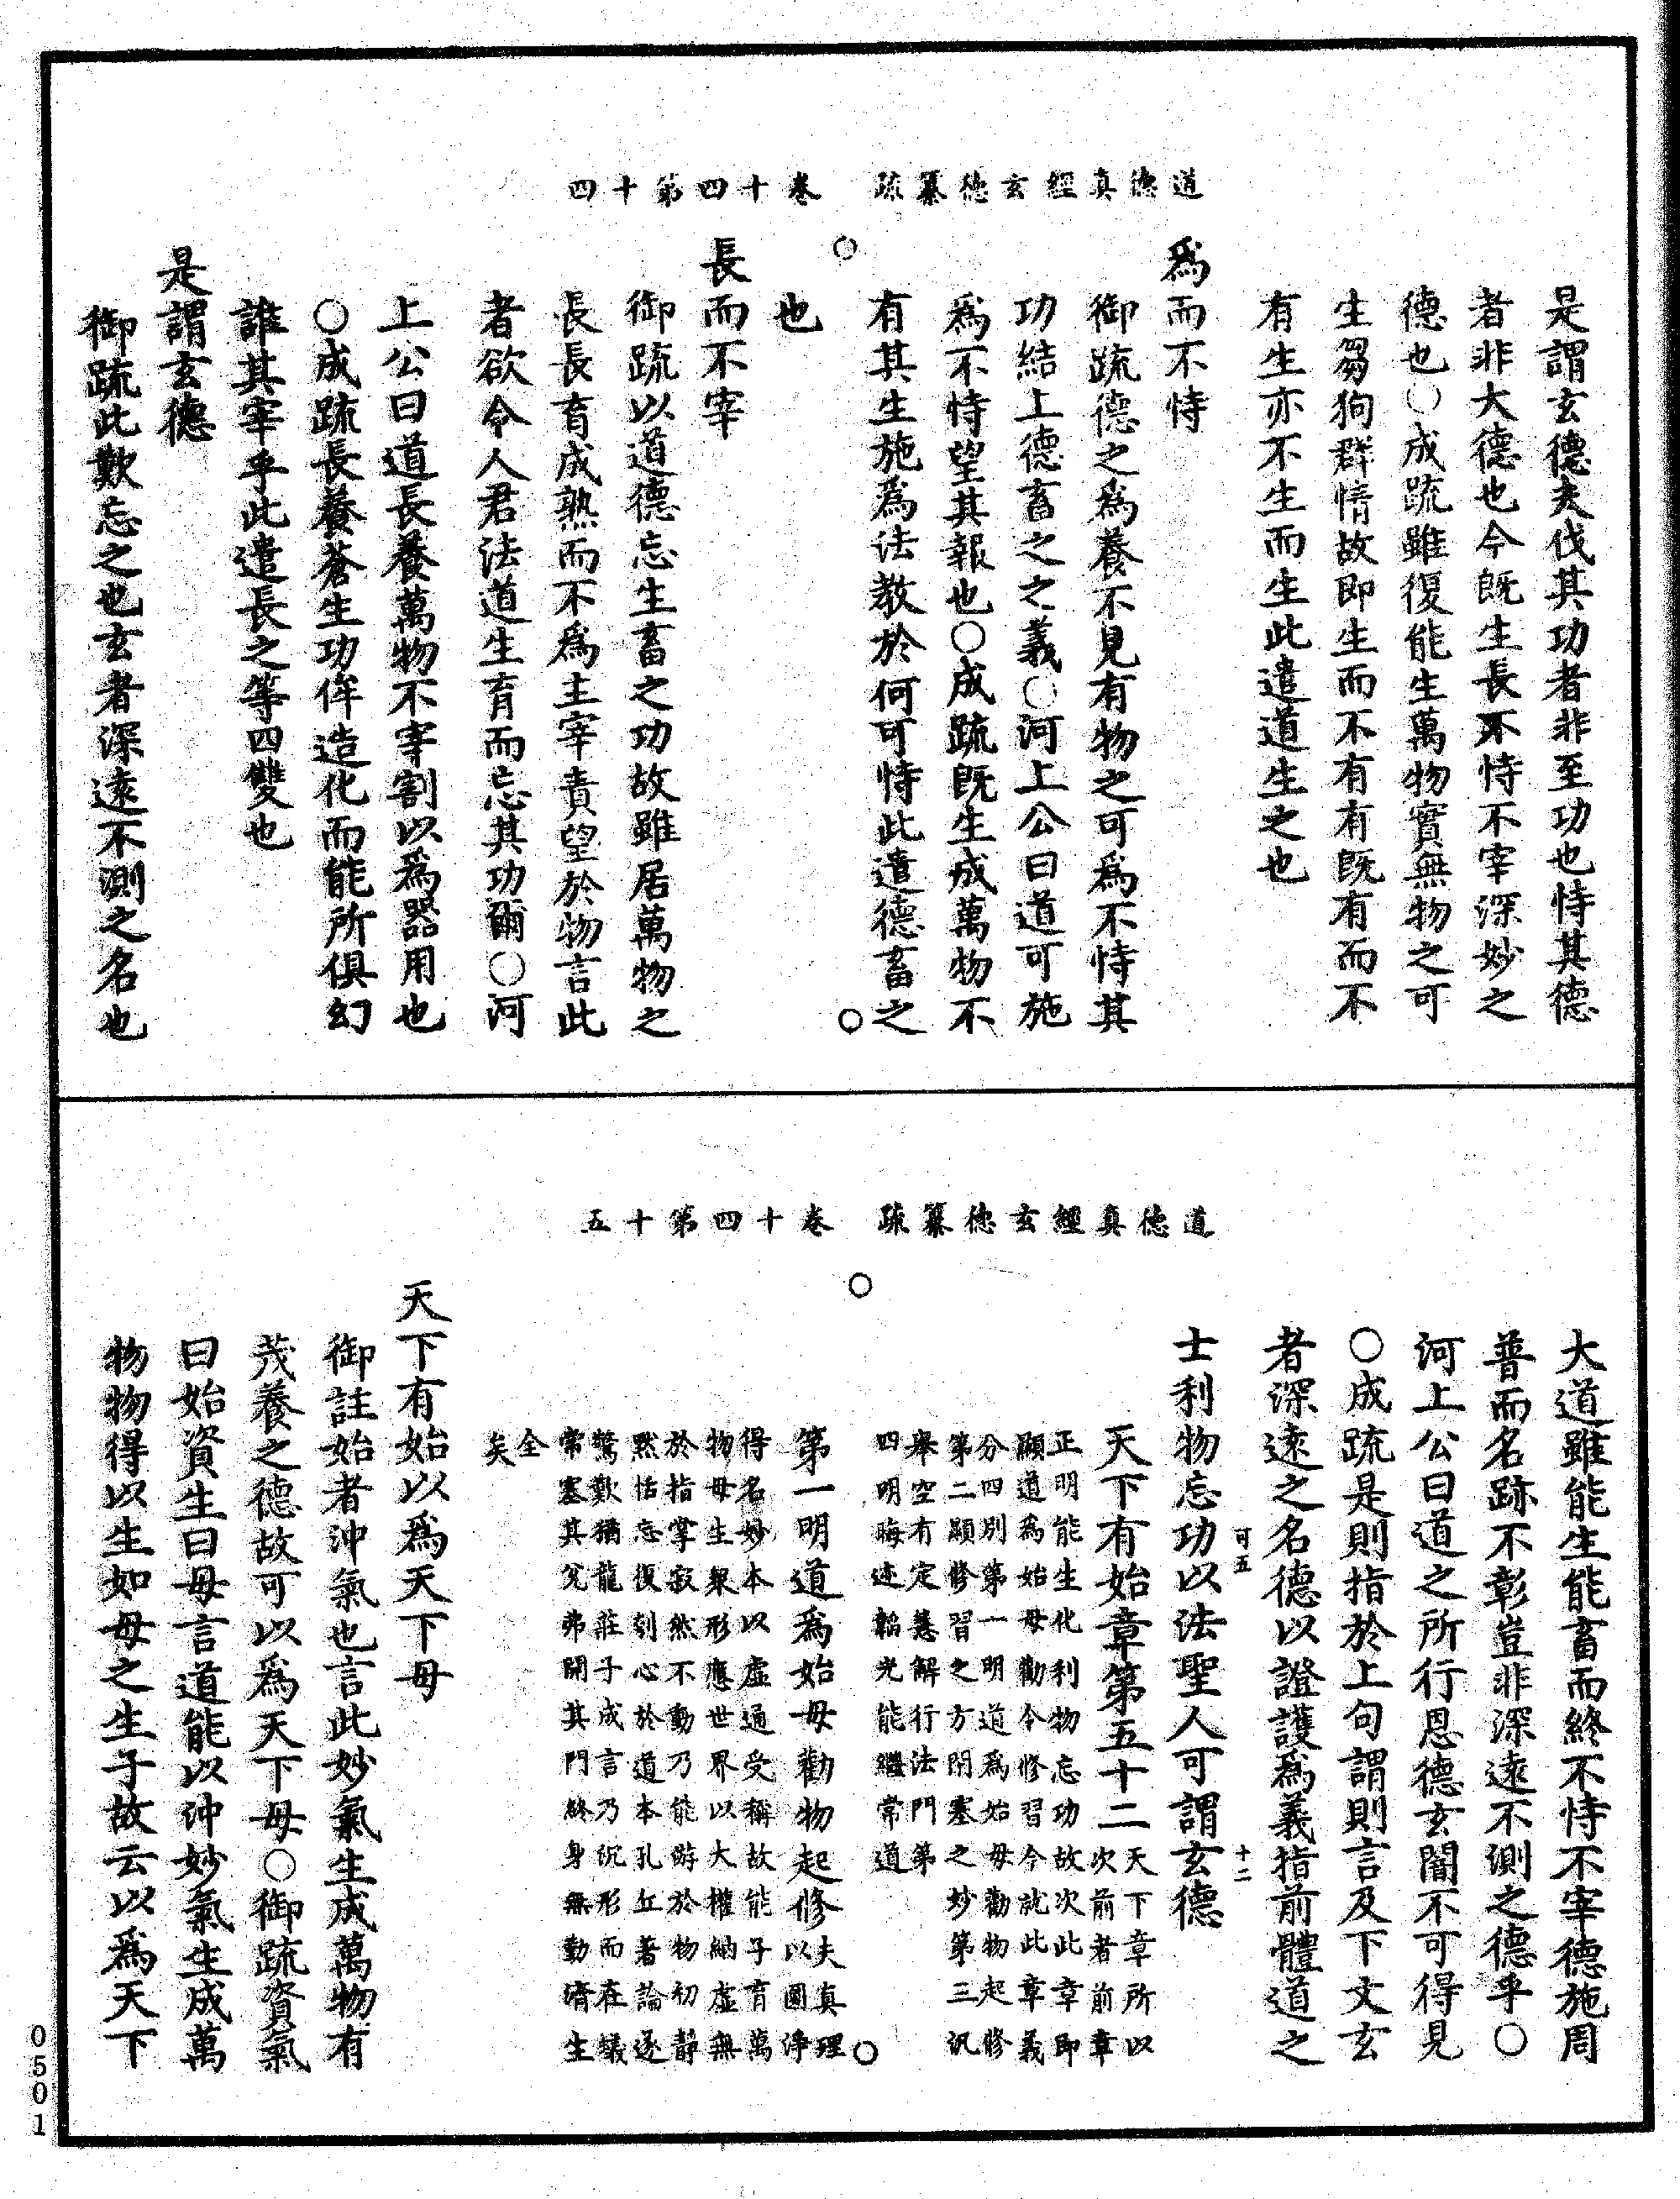 道德真經玄德纂疏　卷十四第十四
是謂玄德夫伐其功者非至功也恃其德
者非大德也今既生長不恃不宰深妙之
德也○成疏雖復能生萬物實無物之可
生芻狗群情故即生而不有有既有而不
有生亦不生而生此遣道生之也
爲而不恃
御疏德之爲養不見有物之可爲不恃其
功結上德畜之之義○河上公曰道可施
爲不恃望其報也○成疏既生成萬物不
有其生施爲法教於何可恃此遣德畜之
也
長而不宰
御疏以道德忘生畜之功故雖居萬物之
長長育成熟而不爲主宰責望於物言此
者欲令人君法道生育而忘其功爾○河
上公曰道長養萬物不宰割以爲器用也
○成疏長養蒼生功侔造化而能所俱幻
誰其宰乎此遣長之等四雙也
是謂玄德
御疏此歎忘之也玄者深遠不測之名也
道德真經玄德纂疏　卷十四第十五
大道雖能生能畜而終不恃不宰德施周
普而名跡不彰豈非深遠不測之德乎○
河上公曰道之所行恩德玄闇不可得見
○成疏是則指於上句謂則言及下文玄
者深遠之名德以證護爲義指前體道之
可五　十二
士利物忘功以法聖人可謂玄德
天下有始章第五十二
天下章所以
次前者前章
正明能生化利物忘功故次此章即
顯道爲始母勸令修習今就此章義
分四別第一明道爲始母勸物起修
第二顯修習之方閉塞之妙第三汎
舉空有定慧解行法門第
四明晦迹韜光能繼常道
第一明道爲始母勸物起修
夫真理
以圓淨
得名妙本以虛通受稱故能子育萬
物母生衆形應世界以大權納虛無
於指掌寂然不動乃能游於物初靜
默恬忘復刳心於道本孔丘著論遂
驚歎猶龍莊子成言乃沉形而在蟻
常塞其兌弗開其門終身無勤濟生
全
矣
天下有始以爲天下母
御註始者沖氣也言此妙氣生成萬物有
茂養之德故可以爲天下母○御疏資氣
曰始資生曰母言道能以沖妙氣生成萬
物物得以生如母之生子故云以爲天下
0501